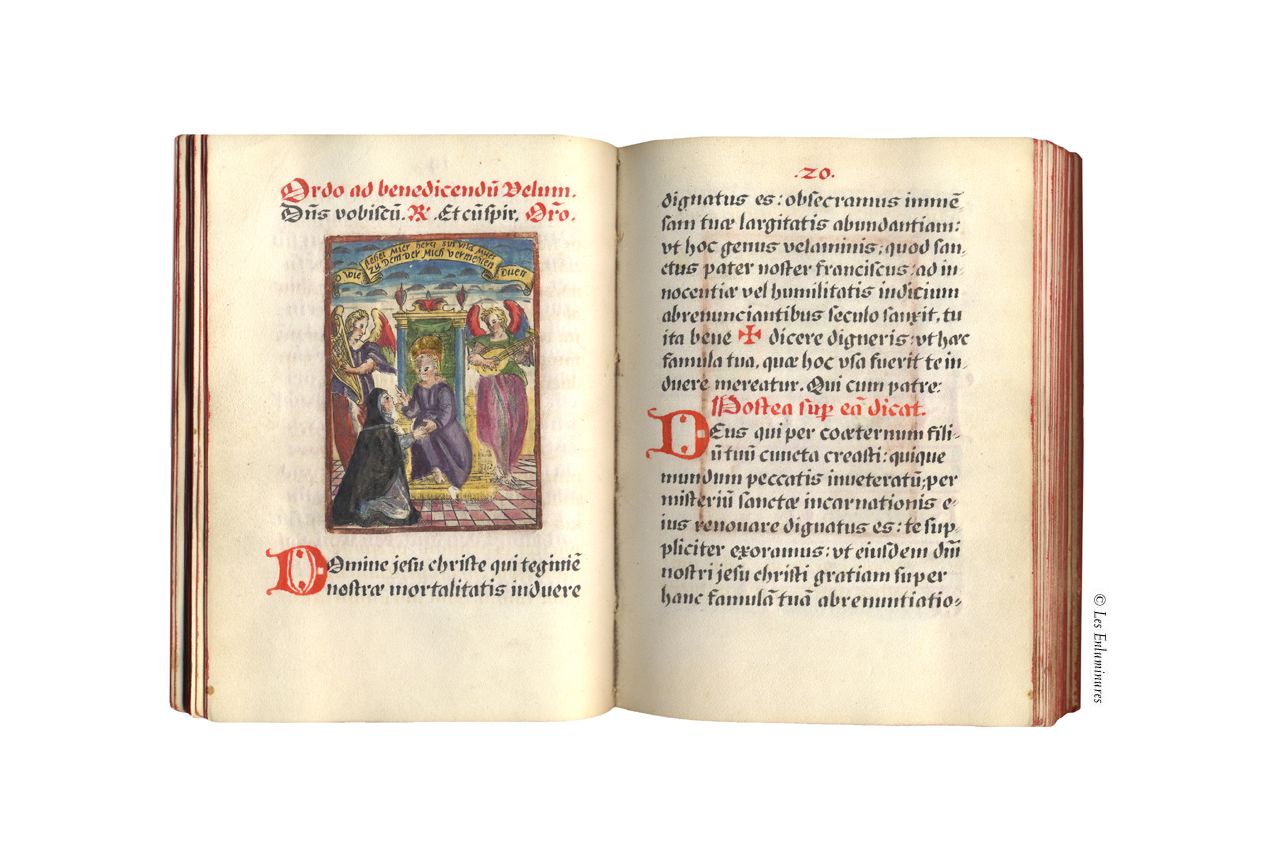 Ordo ad benedicendū Velum.
Dn̄s vobiscū. R. Et cū spir. Orō.
Wie
zu Dem der Mich
Domine jesu christe qui teginiē
nostræ mortalitatis induere
.20.
dignatus es: obsecramus immē
sam tuæ largitatis abundantiam:
vt hoc genus velaminis; quod san-
ctus pater noster franciscus: ad in-
nocentiæ vel humilitatis indicium
abrenunciantibus seculo sanxit, tu
ita bene ✠ dicere digneris: vt hæc
famula tua, quæ hoc vsa fuerit te in-
duere mereatur. Qui cum patre:
Postea sup eā dicat.
DEus qui per coæternum fili-
ū tuū cuncta creasti: quique
mundum peccatis inveteratū; per
misteriū sanctæ incarnationis e-
ius renouare dignatus es: te sup-
pliciter exoramus: vt eiusdem dm̄
nostri jesu christi gratiam super
hanc famulā tuā abrenuntiatio-
© Les Enluminures